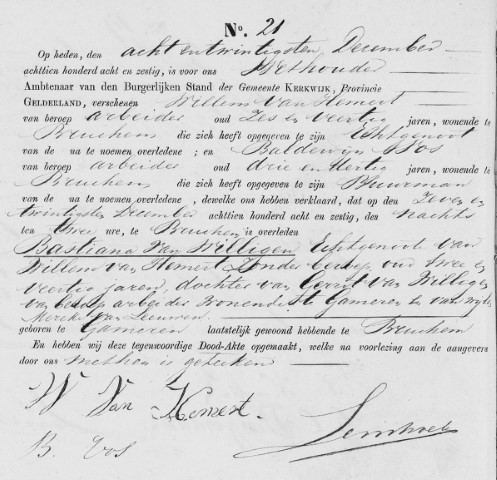 No. 21
Op heden, den acht en twintigsten December
achttien honderd acht en zestig, is voor ons Wethouder
Ambtenaar van den Burgerlijken Stand der Gemeente KERKWIJK, Provincie
GELDERLAND, verschenen Willem van Hemert
van beroep arbeider oud Zes en Veertig jaren, wonende te
Bruchem die zich heeft opgegeven te zijn Echtgenoot
van de na te noemen overledene; en Baldewijn Vos
van beroep arbeider oud drie en dertig jaren, wonende te
Bruchem die zich heeft opgegeven te zijn Buurman
van de na te noemen overledene, dewelke ons hebben verklaard, dat op den Zeven en
twintigsten December achttien honderd acht en zestig, des nachts
ten twee ure, te Bruchem is overleden
Bastiana van Willigen Echtgenoot van
Willem van Hemert Zonder beroep oud twee en
veertig jaren, dochter van Gerrit van Willigen
van beroep arbeider Wonende te Gameren en van wijlen
van Leeuwen
geboren te Gameren laatstelijk gewoond hebbende te Bruchem
En hebben wij deze tegenwoordige Dood-Akte opgemaakt, welke na voorlezing aan de aangevers
door ons met hen is getekend
W van Hemert.
B. Vos